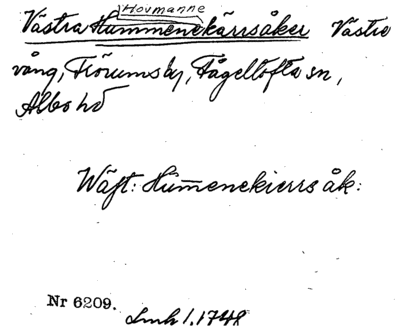 Hovmanne
Västra Hummenekärrsåker Västre
vång, Fiörumsby, Fågeltofta sn,
Albo hd
Wäst: Hum̄enekierrs åk:
Nr 6209. Lmh 1. 1748